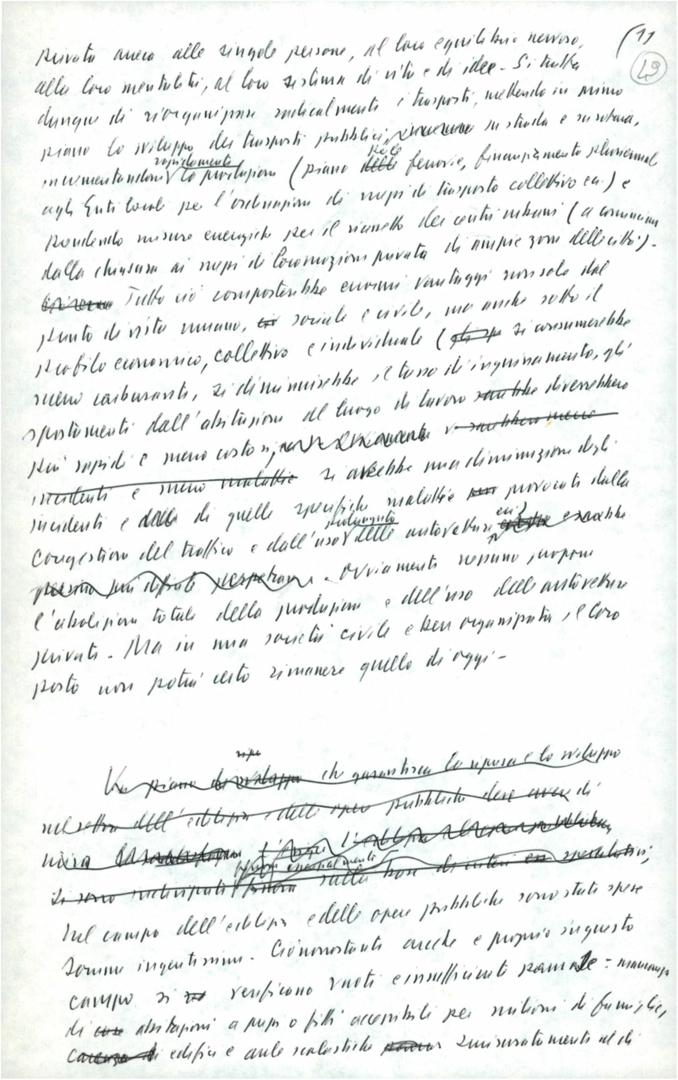 (11
49
privata anreca alle singole persone, al loro equilibrio nervoso,
alla loro mentalità, al loro sistema di vita e di idee. Si tratta
dunque di riorganizzare radicalmente i trasporti, mettendo in primo
piano lo sviluppo dei trasporti pubblici, su strada e su rotaia,
rapidamente delle
incrementandone la produzione (piano ferrovie, finanziamento pluriennale
agli Enti locali per l'ordinazione di mezzi di trasporto collettivo ecc.) e
prendendo misure energiche per il riassetto dei centri urbani (a cominciare
dalla chiusura ai mezzi di locomozione privata di ampie zone delle città).
Tutto ciò comporterebbe enormi vantaggi non solo dal
punto di vista umano, sociale e civile, ma anche sotto il
profilo economico, collettivo e individuale (si consumerebbe
meno carburante, si diminuirebbe il tasso di inquinamento, gli
spostamenti dall'abitazione al luogo di lavoro sarebbe diverrebbero
più rapidi e meno costosi, sarebbero meno
incidenti e meno malattie si avrebbe una diminuzione degli
incidenti e di quelle specifiche malattie provocate dalla
prolungato ecc.)
congestione del traffico e dall'uso delle autovetture
. Ovviamente nessuno propone
l'abolizione totale della produzione e dell'uso delle autovetture
private. Ma in una società civile e ben organizzata il loro
posto non potrà certo rimanere quello di oggi.
Un piano di sviluppo che garantisca la ripresa e lo sviluppo
nel settore dell'edilizia e delle opere pubbliche deve avere di
mira l'edilizia
essenzialmente
si sono sulla base di criteri speculativi,
Nel campo dell'edilizia e delle opere pubbliche sono state spese
somme ingentissime. Ciononostante anche e proprio in questo
campo si verificano vuoti e insufficienze paurose: mancanza
di abitazioni a prezzi o fitti accessibili per milioni di famiglie,
carenza di edifici e aule scolastiche smisuratamente al di